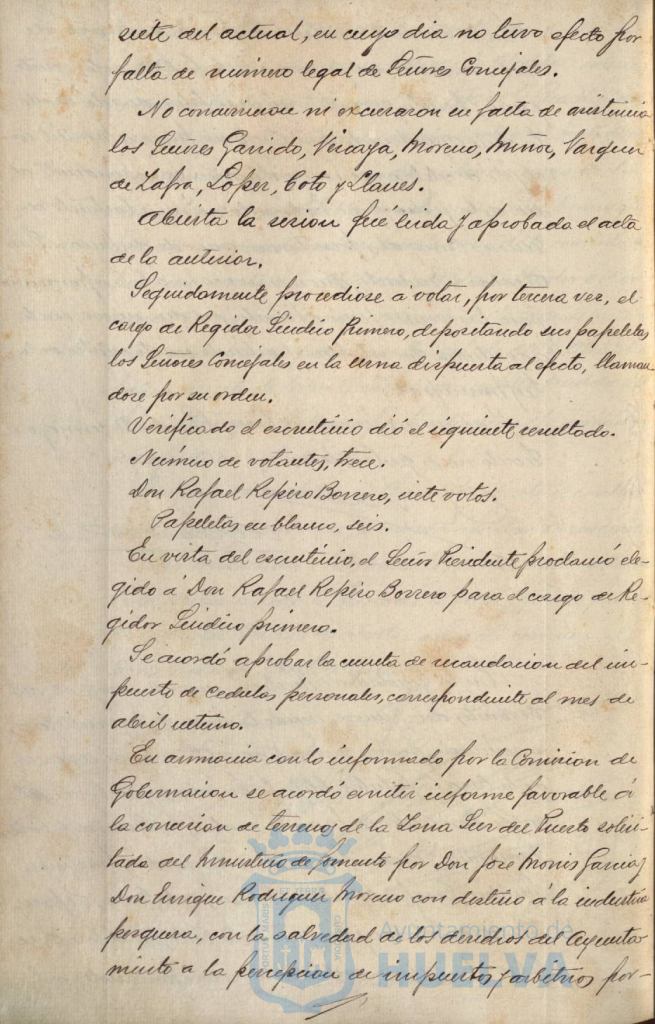 siete del actual, en cuyo dia no tuvo efecto por
falta de número legal de Señores Concejales.
No concurrieron ni excusaron su falta de asistencia
los Señores Garrido, Vizcaya, Moreno, Muñoz, Vazquez
de Zafra, Lopez, Coto y Llanes.
Abierta la sesion fué leida y aprobada el acta
de la anterior.
Seguidamente procediose á votar, por tercera vez, el
cargo de Regidor Síndico Primero, depositando sus papeletas
los Señores Concejales en la urna dispuesta al efecto, llaman
dose por su orden.
Verificado el escrutinio dió el siguiente resultado.
Número de votantes, trece.
Don Rafael Repiso Borrero, siete votos.
Papeletas en blanco, seis.
En vista del escrutinio, el Señor Presidente proclamó ele-
gido á Don Rafael Repiso Borrero para el cargo de Re-
gidor Síndico primero.
Se acordó aprobar la cuenta de recaudacion del im-
puesto de cedulas personales, correspondiente al mes de
abril ultimo.
En armonia con lo informado por la Comision de
Gobernacion se acordó emitir informe favorable á
la concesion de terrenos de la Zona Sur del Puerto solici-
tada del Ministerio de Fomento por Don José Monis Garcia y
Don Enrique Rodriguez Moreno con destino á la industria
pesquera, con la salvedad de los derechos del Ayunta
miento a la percepcion de impuestos y arbitrios por-
Ayuntamiento de
HUELVA